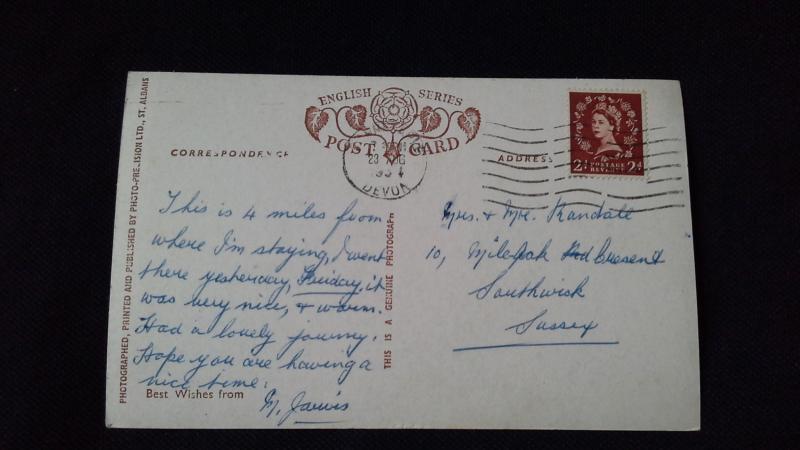 ENGLISH SERIES
POST CARD
CORRESPONDENCE
ADDRESS
DEVON
2d POSTAGE REVENUE 2d
This is 4 miles from
where I'm staying, I went
there yesterday, Friday, it
was very nice, & warm.
Had a lovely journey.
Hope you are having a
nice time.
Best Wishes from
M. Jarvis
Mrs. & Mr. Randall
10, Crescent
Southwick
Sussex
THIS IS A GENUINE PHOTOGRAPH
PHOTOGRAPHED, PRINTED AND PUBLISHED BY PHOTO-PRECISION LTD., ST. ALBANS